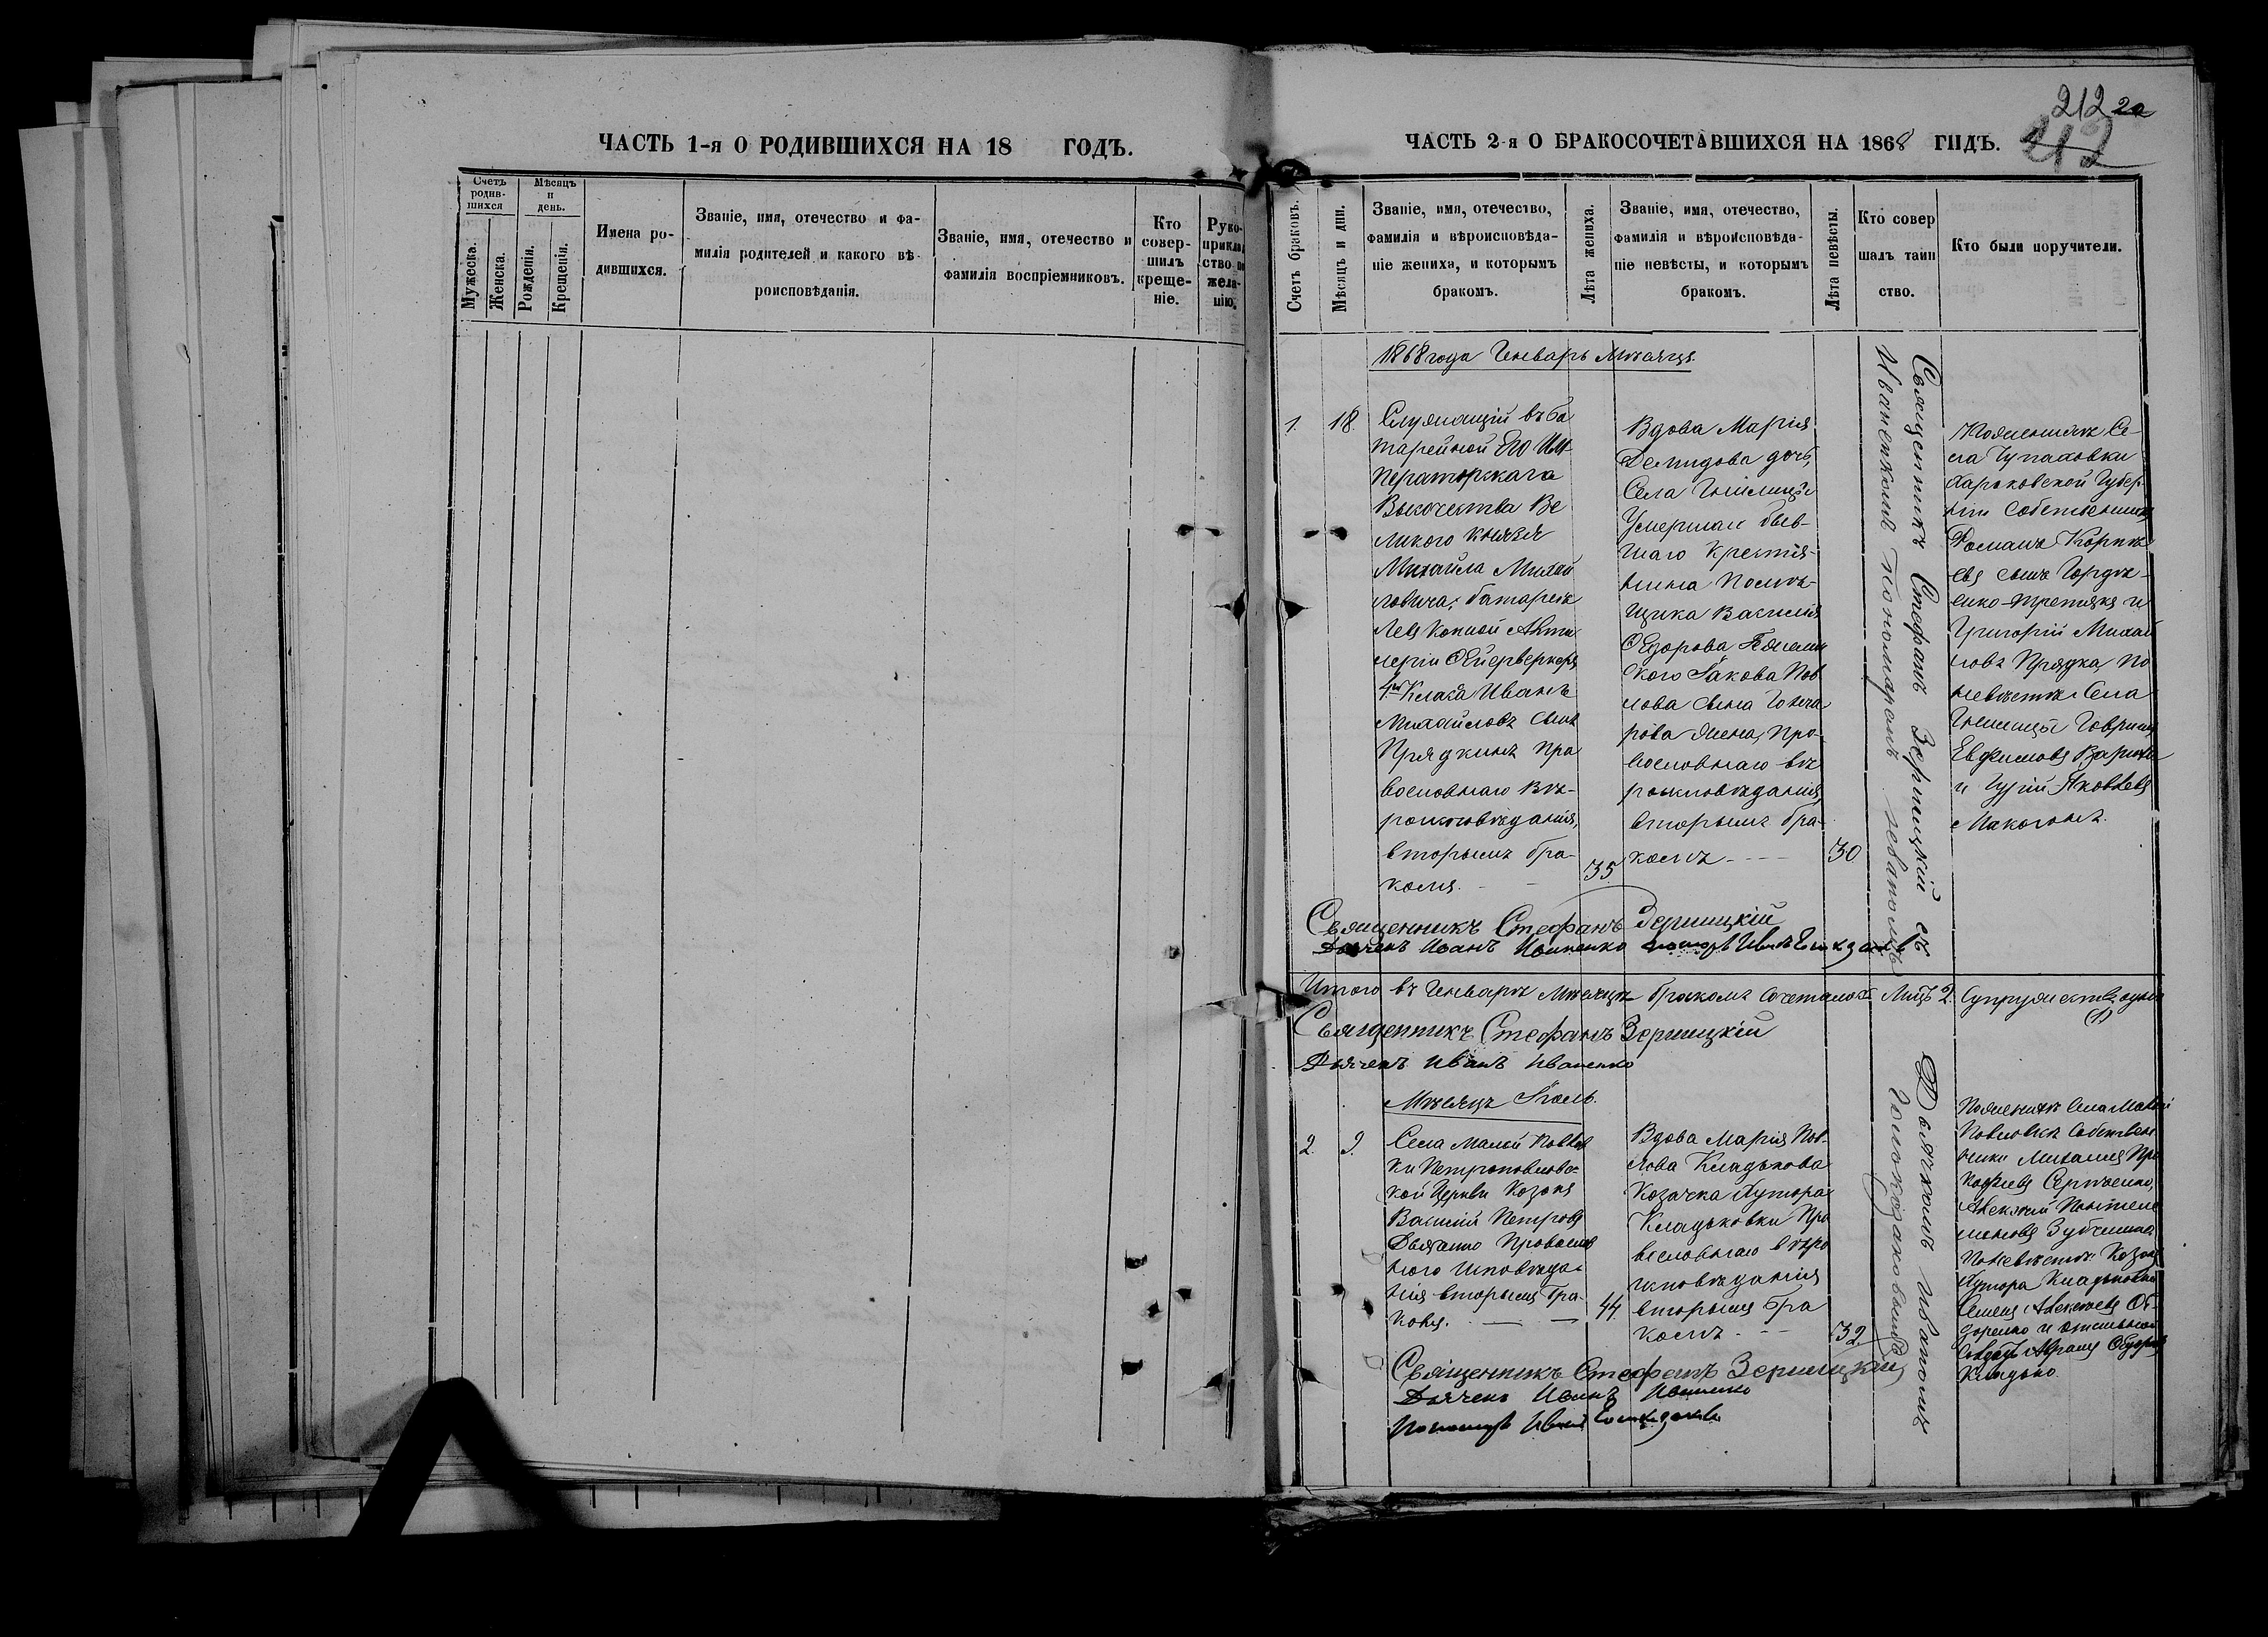 ЧАСТЬ 1-я О РОДИВШИХСЯ НА 18 ГОДЪ.
Счетъ родив-шихся
Мужеска.
Женска.
Мѣсяцъ и день.
Рожденія.
Крещенія.
Имена ро-
дившихся.
Званіе, имя, отечество и фа-
милія родителей и какого вѣ-
роисповѣданія.
Званіе, имя, отечество и
фамилія воспріемниковъ.
Кто
совер-
шилъ
креще-
ніе.
Руко-
прикла
ство по
жела-
нію.
212 22
212
ЧАСТЬ 2-я О БРАКОСОЧЕТАВШИХСЯ НА 1868 ГОДЪ.
Счетъ браковъ.
Мѣсяцъ и дни.
Званіе, имя, отечество,
фамилія и вѣроисповѣда-
ніе жениха, и которымъ
бракомъ.
Лѣта жениха.
Званіе, имя, отечество,
фамилія и вѣроисповѣда-
ніе невѣсты, и которымъ
бракомъ.
Лѣта невѣсты.
Кто совер
шалъ таин
ство.
Кто были поручители.
1868 года Генварь Мѣсяцъ
1.
18.
Служащій въ ба
тарейной Его Им-
ператорскаго
Высочества Ве
ликого князя
Михаила Михай
ловича, батареѣ
Лев Конной Арти
лерiи Фейерверкеръ
4го Класа Иванъ
Михайловъ сынъ
Прядкинъ пра
вославнаго вѣ-
роисповѣданія,
вторымъ бра-
комъ.
35
Вдова Марія
Демидова дочь,
Села Гнилицы
Умершаго быв-
шаго крестья-
нина Помѣ-
щика Василія
Федорова
Іакова Пав
лова сына Гонча
рова жена, Пра-
вославнаго вѣ
роисповѣданія
вторымъ бра-
комъ
30
Священникъ Стефанъ Зерницкій съ
Иваненкомъ пономаремъ
По женихѣ Се-
ла Чупаховки
Харьковской Губер-
ніи Собственники
Романъ Корнѣ
евъ сынъ Гордѣ-
енко-Третякъ и
Григорій Михай
ловъ Прядка, по
невѣстѣ Села
Гнилицы Гаврiилъ
Евфимовъ
и Гурій Яковлевъ
Макогонъ.
Священникъ Стефанъ Зерницкій
Дьячекъ Иванъ Иваненко
Итого въ Генварѣ Мѣсяцѣ бракомъ сочеталось Лицъ 2. Супружествъ одно
Священникъ Стефанъ Зерницкій
Дьячекъ Иванъ Иваненко
Мѣсяцъ Іюль.
2.
9.
Села Малой Павлов
ки Петропавловс
кой Церкви Козакъ
Василій Петровъ
Православ
наго исповѣда
нія вторымъ бра-
комъ.
44.
Вдова Марія Пав-
лова Кладькова
Козачка Хутора
Кладьковки Пра
вославнаго вѣро
исповѣданія
вторымъ бра
комъ
32.
Дьячкомъ Иваномъ
По женихѣ Села Малой
Павловки Собствен
ники Михаилъ Про
кофіевъ Сергѣенко,
Алексѣй Пантеле
моновъ
По невѣстѣ: Козакъ
Хутора Кладьковки
Семенъ Алексѣевъ
и отставной
Солдатъ Абрамъ Федоровъ
Кладько.
Священникъ Стефанъ Зерницкій
Дьячекъ Иванъ Иваненко
Пономарь Иванъ